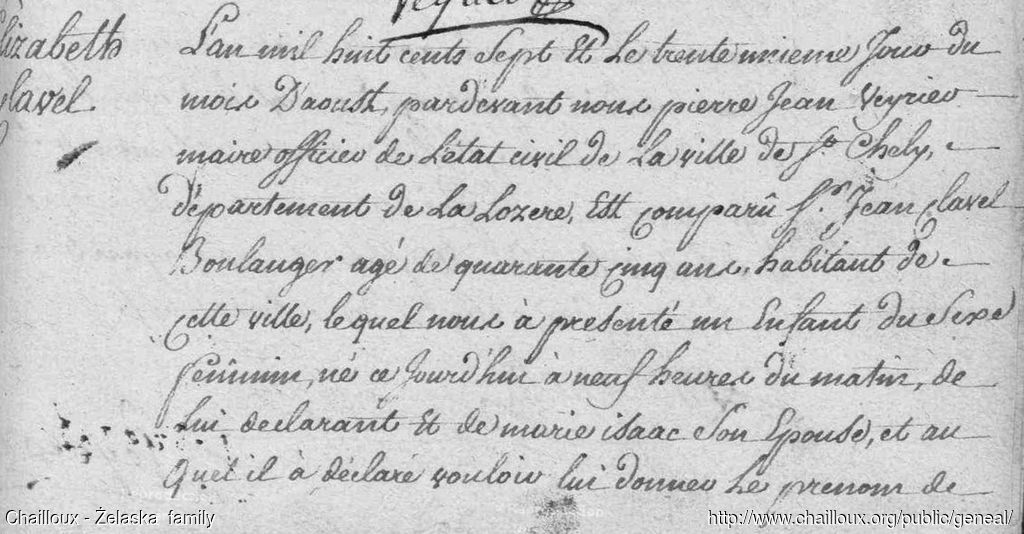 Elizabeth
Clavel
L'an mil huit cents Sept Et Le trente unieme Jour du
mois D'aoust, pardevant nous pierre Jean Veyrier
maire officier de L'état civil de La ville de St Chely,
département de La Lozere, Est comparû Sr. Jean Clavel
Boulanger agé de quarante cinq ans, habitant de
cette ville, lequel nous à presenté un Enfant du Sexe
féminin, né ce Jourd'hui à neuf heures du matin, de
Lui declarant Et de marie isaac Son Epouse, et au
Quel il à déclaré vouloir lui donner Le prenom de
Chailloux - Żelaska family
http://www.chailloux.org/public/geneal/